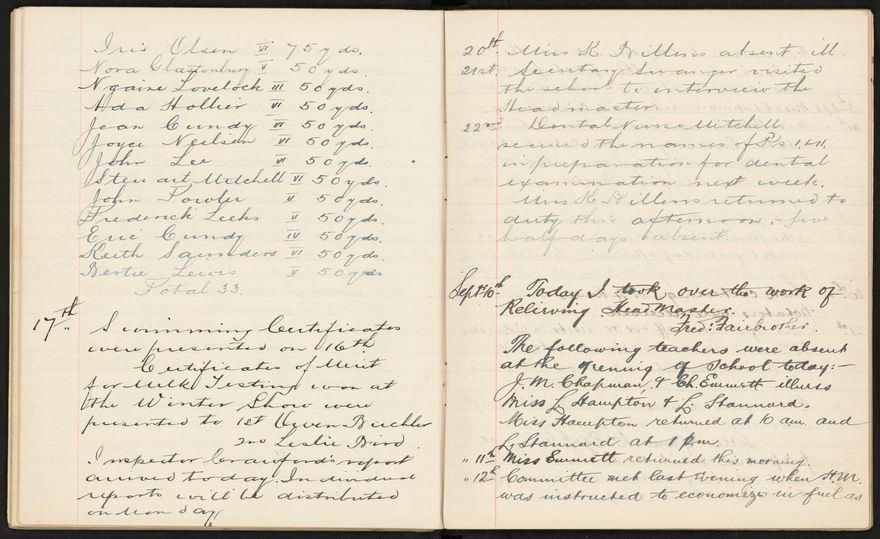 Iris Olsen VI 75 yds.
Nora Glastonbury V 50 yds.
Ngaire Lovelock III 50 yds.
Ada Hollier VI 50 yds.
Jean Cundy VI 50 yds.
Joyce Neilsen VI 50 yds.
John Lee VI 50 yds.
Stewart Mitchell VI 50 yds.
John Fowler V 50 yds.
Frederick Leeks V 50 yds.
Eric Cundy IV 50 yds.
Keith Saunders VI 50 yds.
Bertie Lewis V 50 yds
Total 33.
17th. Swimming Certificates
were presented on 16th.
Certificates of Merit
for Milk Testing won at
the Winter Show were
presented to 1st Buchler
2nd Leslie Bird.
Inspector Crawford's report
arrived today. Individual
reports will be distributed
on Monday
20th. Miss K. Willems absent. ill.
21st. Secretary Swanger visited
the school to interview the
Headmaster.
22nd Dental Nurse Mitchell
secured the names of P's 1, & 11,
in preparation for dental
examination next week.
Miss K. Willems returned to
duty this afternoon, - five
half days absent.
Sept. 10th Today I took over the work of
Relieving Head Master.
Fred: Fairbrother.
The following teachers were absent
at the opening of School today:-
J. M. Chapman, & Ch. Emmett illness
Miss L. Hampton & L. Stannard.
Miss Hampton returned at 10 am. and
L. Stannard at 1 p.m.
" 11th Miss Emmett returned this morning.
" 12th Committee met last evening when H.M.
was instructed to economize in fuel as